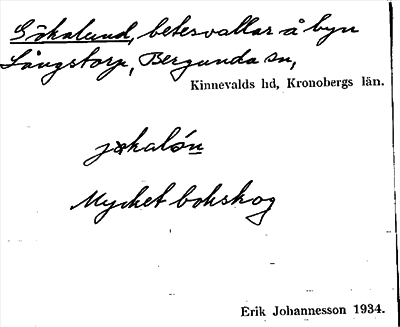 Gökalund, betesvallar å byn
Långstorp, Bergunda sn,
Kinnevalds hd, Kronobergs län.
jökaló̱n
Mycket bokskog
Erik Johannesson 1934.